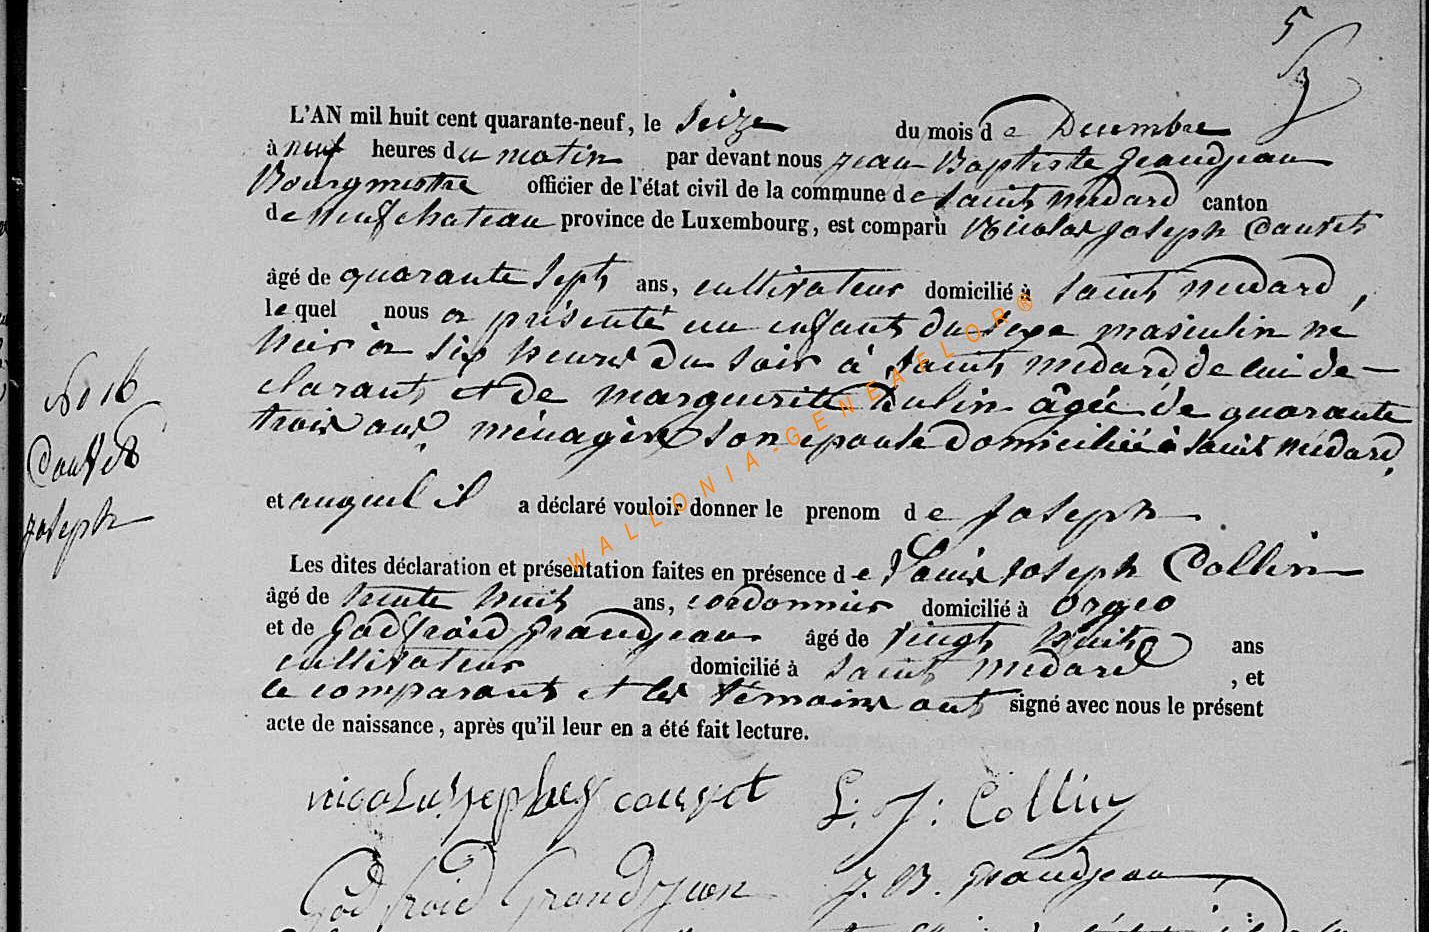 5
L'AN mil huit cent quarante-neuf, le Seize du mois de Decembre
à neuf heures du matin par devant nous jean Baptiste Grandjean
Bourgmestre officier de l'état civil de la commune de Saint medard canton
de neufchateau province de Luxembourg, est comparu Nicolas joseph
âgé de quarante Sept ans, cultivateur domicilié à Saint medard,
lequel nous a présenté un enfant du Sexe masculin né
hier à six heures du soir à Saint medard de lui dé-
clarant et de marguerite âgée de quarante
trois ans, ménagère son epouse domiciliée à Saint medard,
No 16
joseph
et auquel il a déclaré vouloir donner le prenom de joseph
Les dites déclaration et présentation faites en présence de Louis joseph Collin
âgé de trente huit ans, cordonnier domicilié à Orgeo
et de Godfroid Grandjean âgé de vingt huit ans
cultivateur domicilié à Saint medard, et
le comparant et les témoins ont signé avec nous le présent
acte de naissance, après qu'il leur en a été fait lecture.
L. J. Collin
Godfroid Grandjean J. B. Grandjean
WALLONIA-GENEAFLOR®